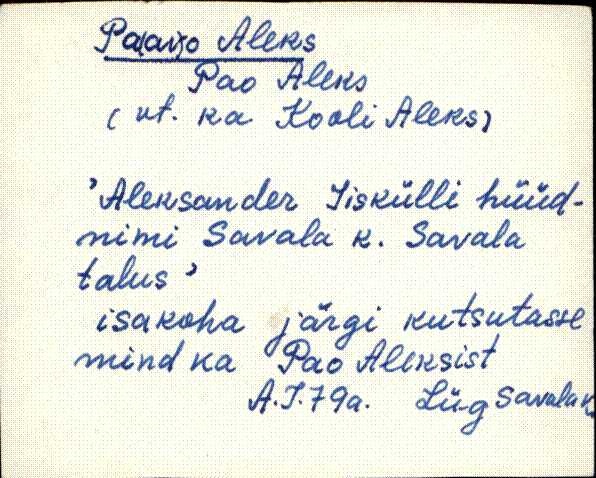 Pa(av)o Aleks
Pao Aleks
( vt. ka Kooli Aleks)
'Aleksander Iiskülli hüüd-
nimi Savala k. Savala
talus'
isakoha järgi kutsutasse
mind ka Pao Aleksist
A.I. 79a. Lüg Savala k.